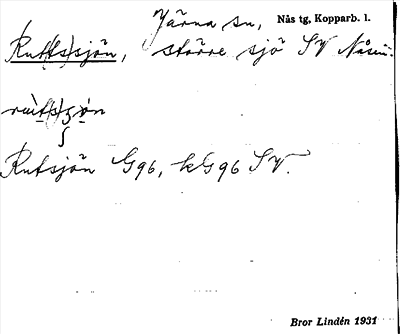 Järna sn, Nås tg, Kopparb. l.
Rut(t)(s)sjön, större sjö SV Nåsen.
Rutsjön G96, kG96 SV.
Bror Lindén 1931